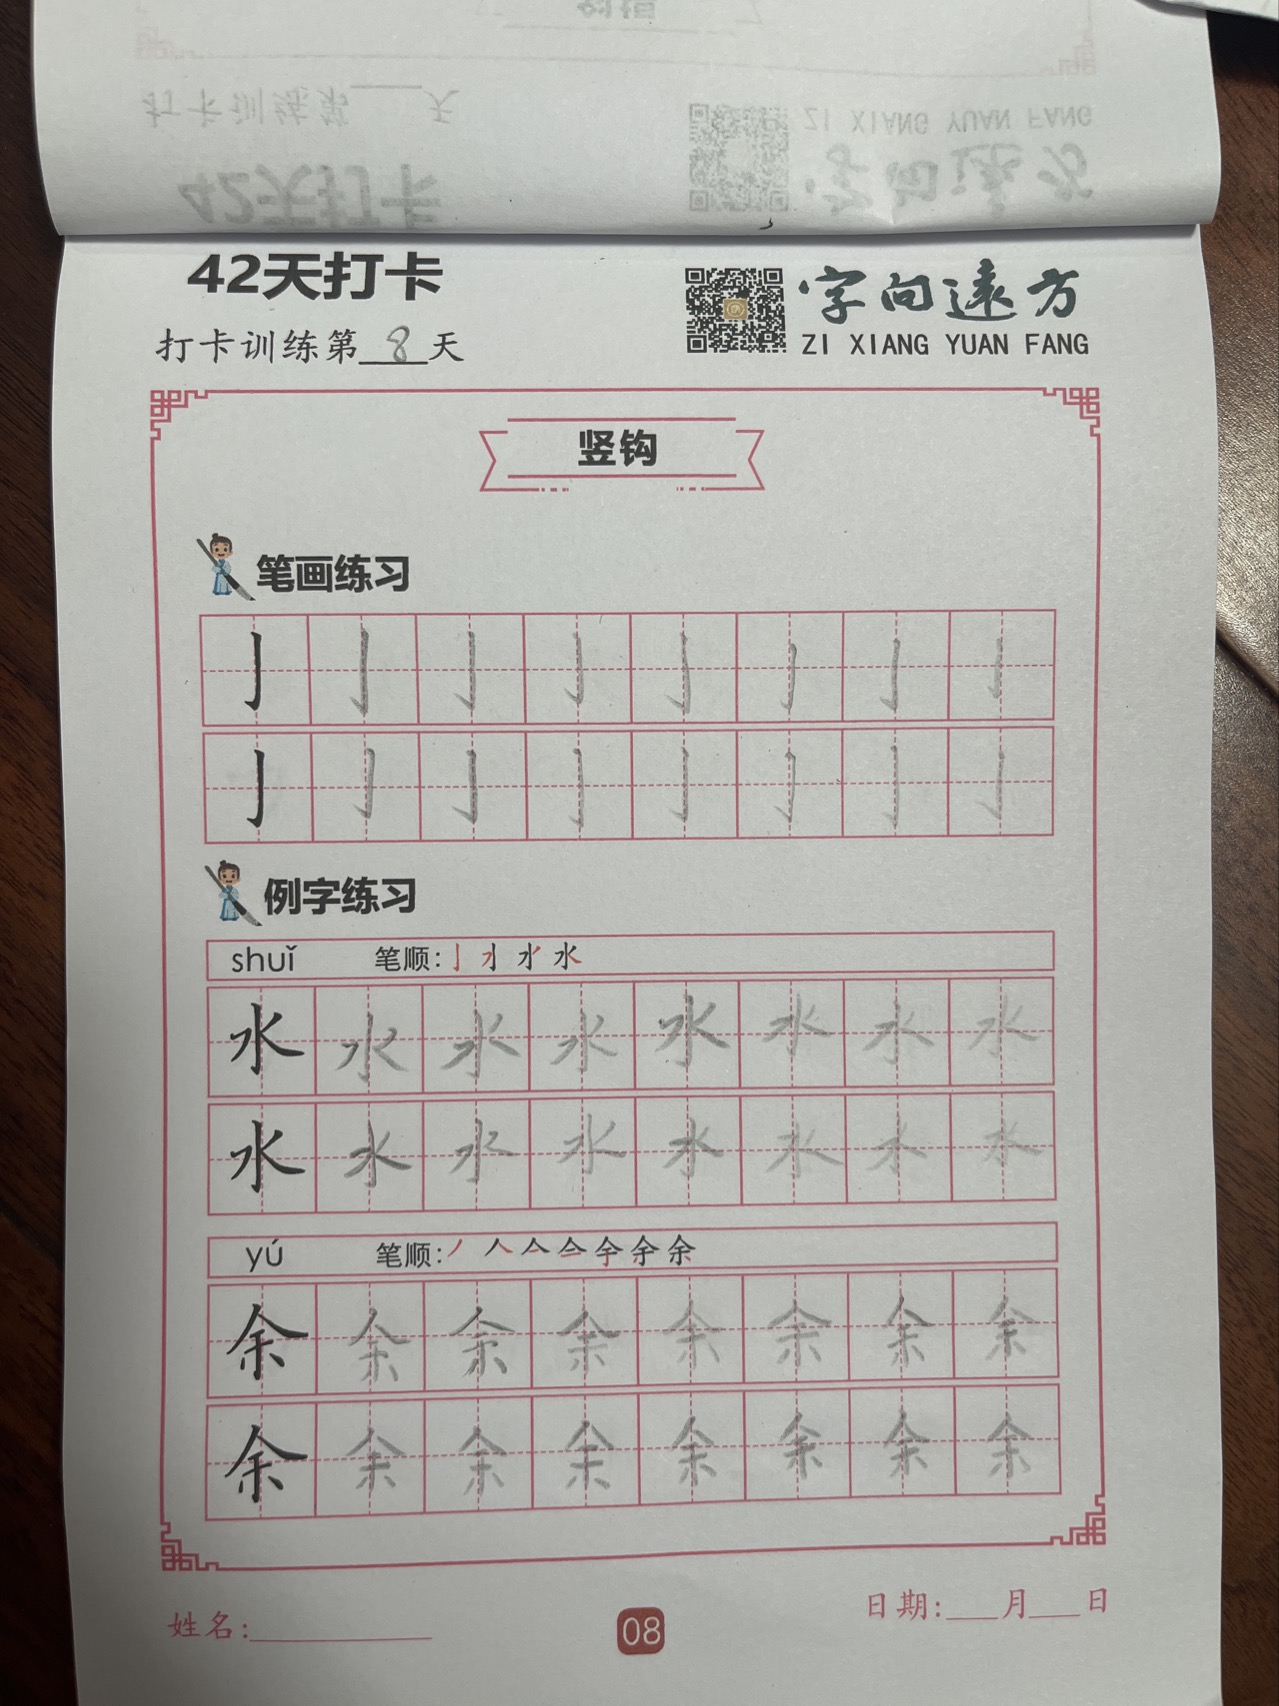 42天打卡
字向遠方
打卡训练第8天
ZI XIANG YUAN FANG
竖钩
笔画练习
亅亅亅亅亅亅亅亅
亅亅亅亅亅亅亅亅
例字练习
shuǐ 笔顺: 水
水水水水水水水水
水水水水水水水水
yú 笔顺: 余
余余余余余余余余
余余余余余余余余
姓名:
08
日期: 月 日